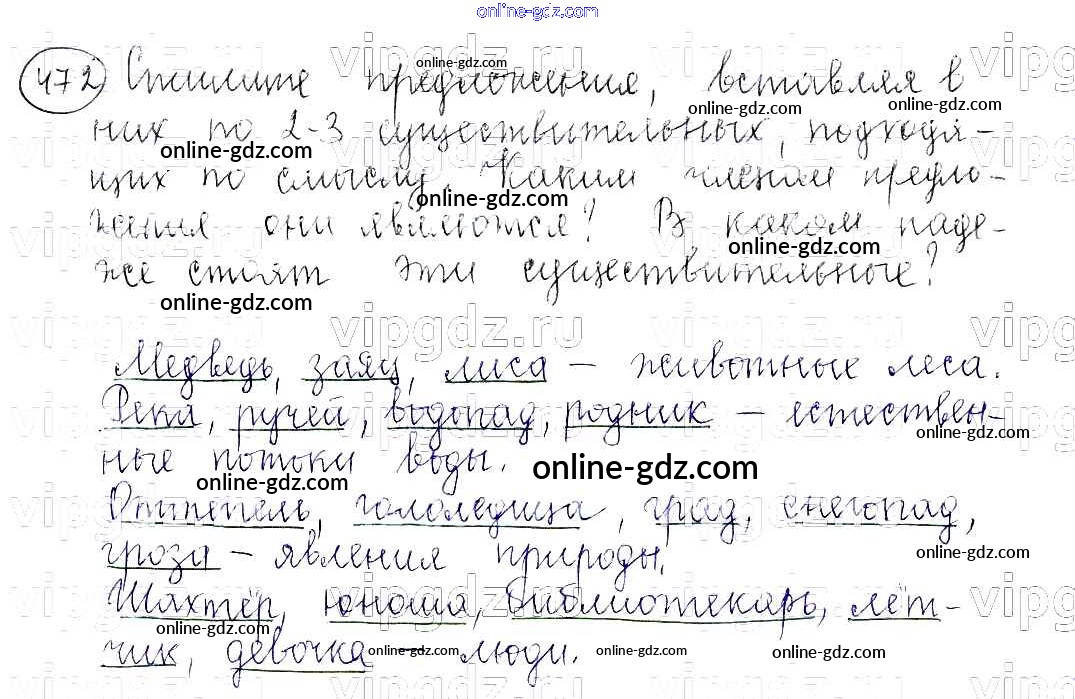 online-gdz.com
472 Спишите предложения, вставляя в
них по 2-3 существительных, подходя-
щих по смыслу. Каким членом предло-
жения они являются? В каком паде-
же стоят эти существительные?
Медведь, заяц, лиса – животные леса.
Река, ручей, водопад, родник – естествен-
ные потоки воды.
Оттепель, гололедица, град, снегопад,
гроза – явления природы.
Шахтёр, юноша, библиотекарь, лёт-
чик, девочка – люди.
vipgdz.ru
online-gdz.com